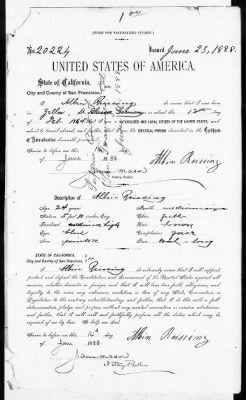 [FORM FOR NATURALIZED CITIZEN.]
No. 20224 Issued June 23, 1888.
UNITED STATES OF AMERICA.
State of California,
City and County of San Francisco,
I Albin Reissing do swear that I was born
in on or about the day
of Feb. 1864 that I am a NATURALIZED AND LOYAL CITIZEN OF THE UNITED STATES, and
about to travel abroad, and further that I am the IDENTICAL PERSON described in the Certificate
of Naturalization herewith presented.
Sworn to before me this
June 1888
Albin Reissing
James Mason
Notary Public.
Description of Albin Reissing
Age 24 years
Stature 5 feet inches, Eng.
Forehead
Eyes Blue
Nose
Mouth
Chin full
Hair Brown
Complexion fair
Face oval
STATE OF CALIFORNIA,
City and County of San Francisco,
I Albin Reissing do solemnly swear that I will support,
protect, and defend the Constitution and Government of the United States against all
enemies, whether domestic or foreign, and that I will bear true faith, allegiance, and
loyalty to the same, any ordinance, resolution, or law of any State, Convention, or
Legislature to the contrary notwithstanding; and further, that I do this with a full
determination, pledge, and purpose, without any mental reservation or evasion whatsoever;
and further, that I will well and faithfully perform all the duties which may be
required of me by law. So help me God.
Albin Reissing
Sworn to before me this day
of June 1888
James Mason
Notary Public